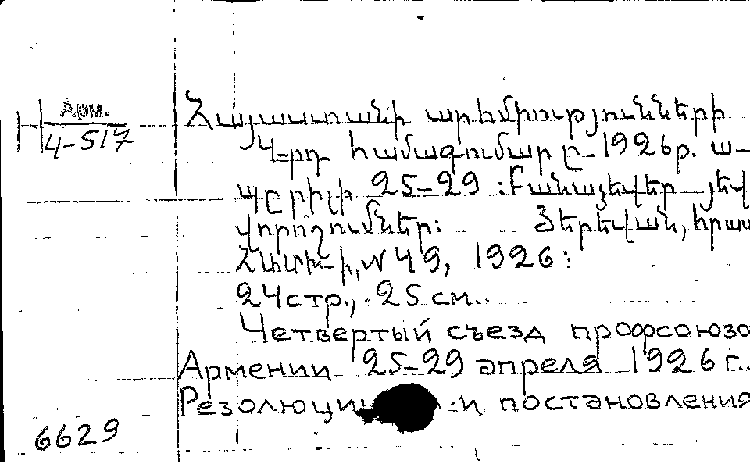 Арм.
H 4-517
Հայաստանի արհմիությունների
4-րդ համագումարը 1926թ. ա-
պըրիլի 25-29: Բանաձեվեր յեվ
վորոշումներ: Յերեվան, հրատ
№ 49, 1926:
24 стр., 25 см.
Четвертый съезд профсоюзо
Армении 25-29 апреля 1926 г.
Резолюции и постановления
6629